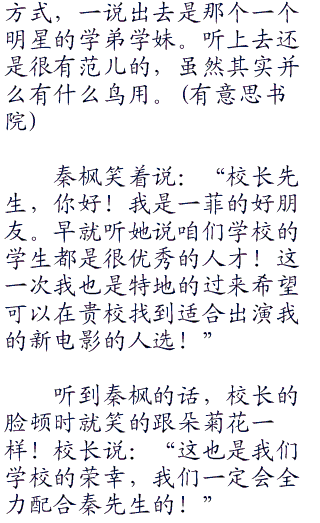 方式，一说出去是那个一个
明星的学弟学妹。听上去还
是很有范儿的，虽然其实并
么有什么鸟用。(有意思书
院)
秦枫笑着说：“校长先
生，你好！我是一菲的好朋
友。早就听她说咱们学校的
学生都是很优秀的人才！这
一次我也是特地的过来希望
可以在贵校找到适合出演我
的新电影的人选！”
听到秦枫的话，校长的
脸顿时就笑的跟朵菊花一
样！校长说：“这也是我们
学校的荣幸，我们一定会全
力配合秦先生的！”